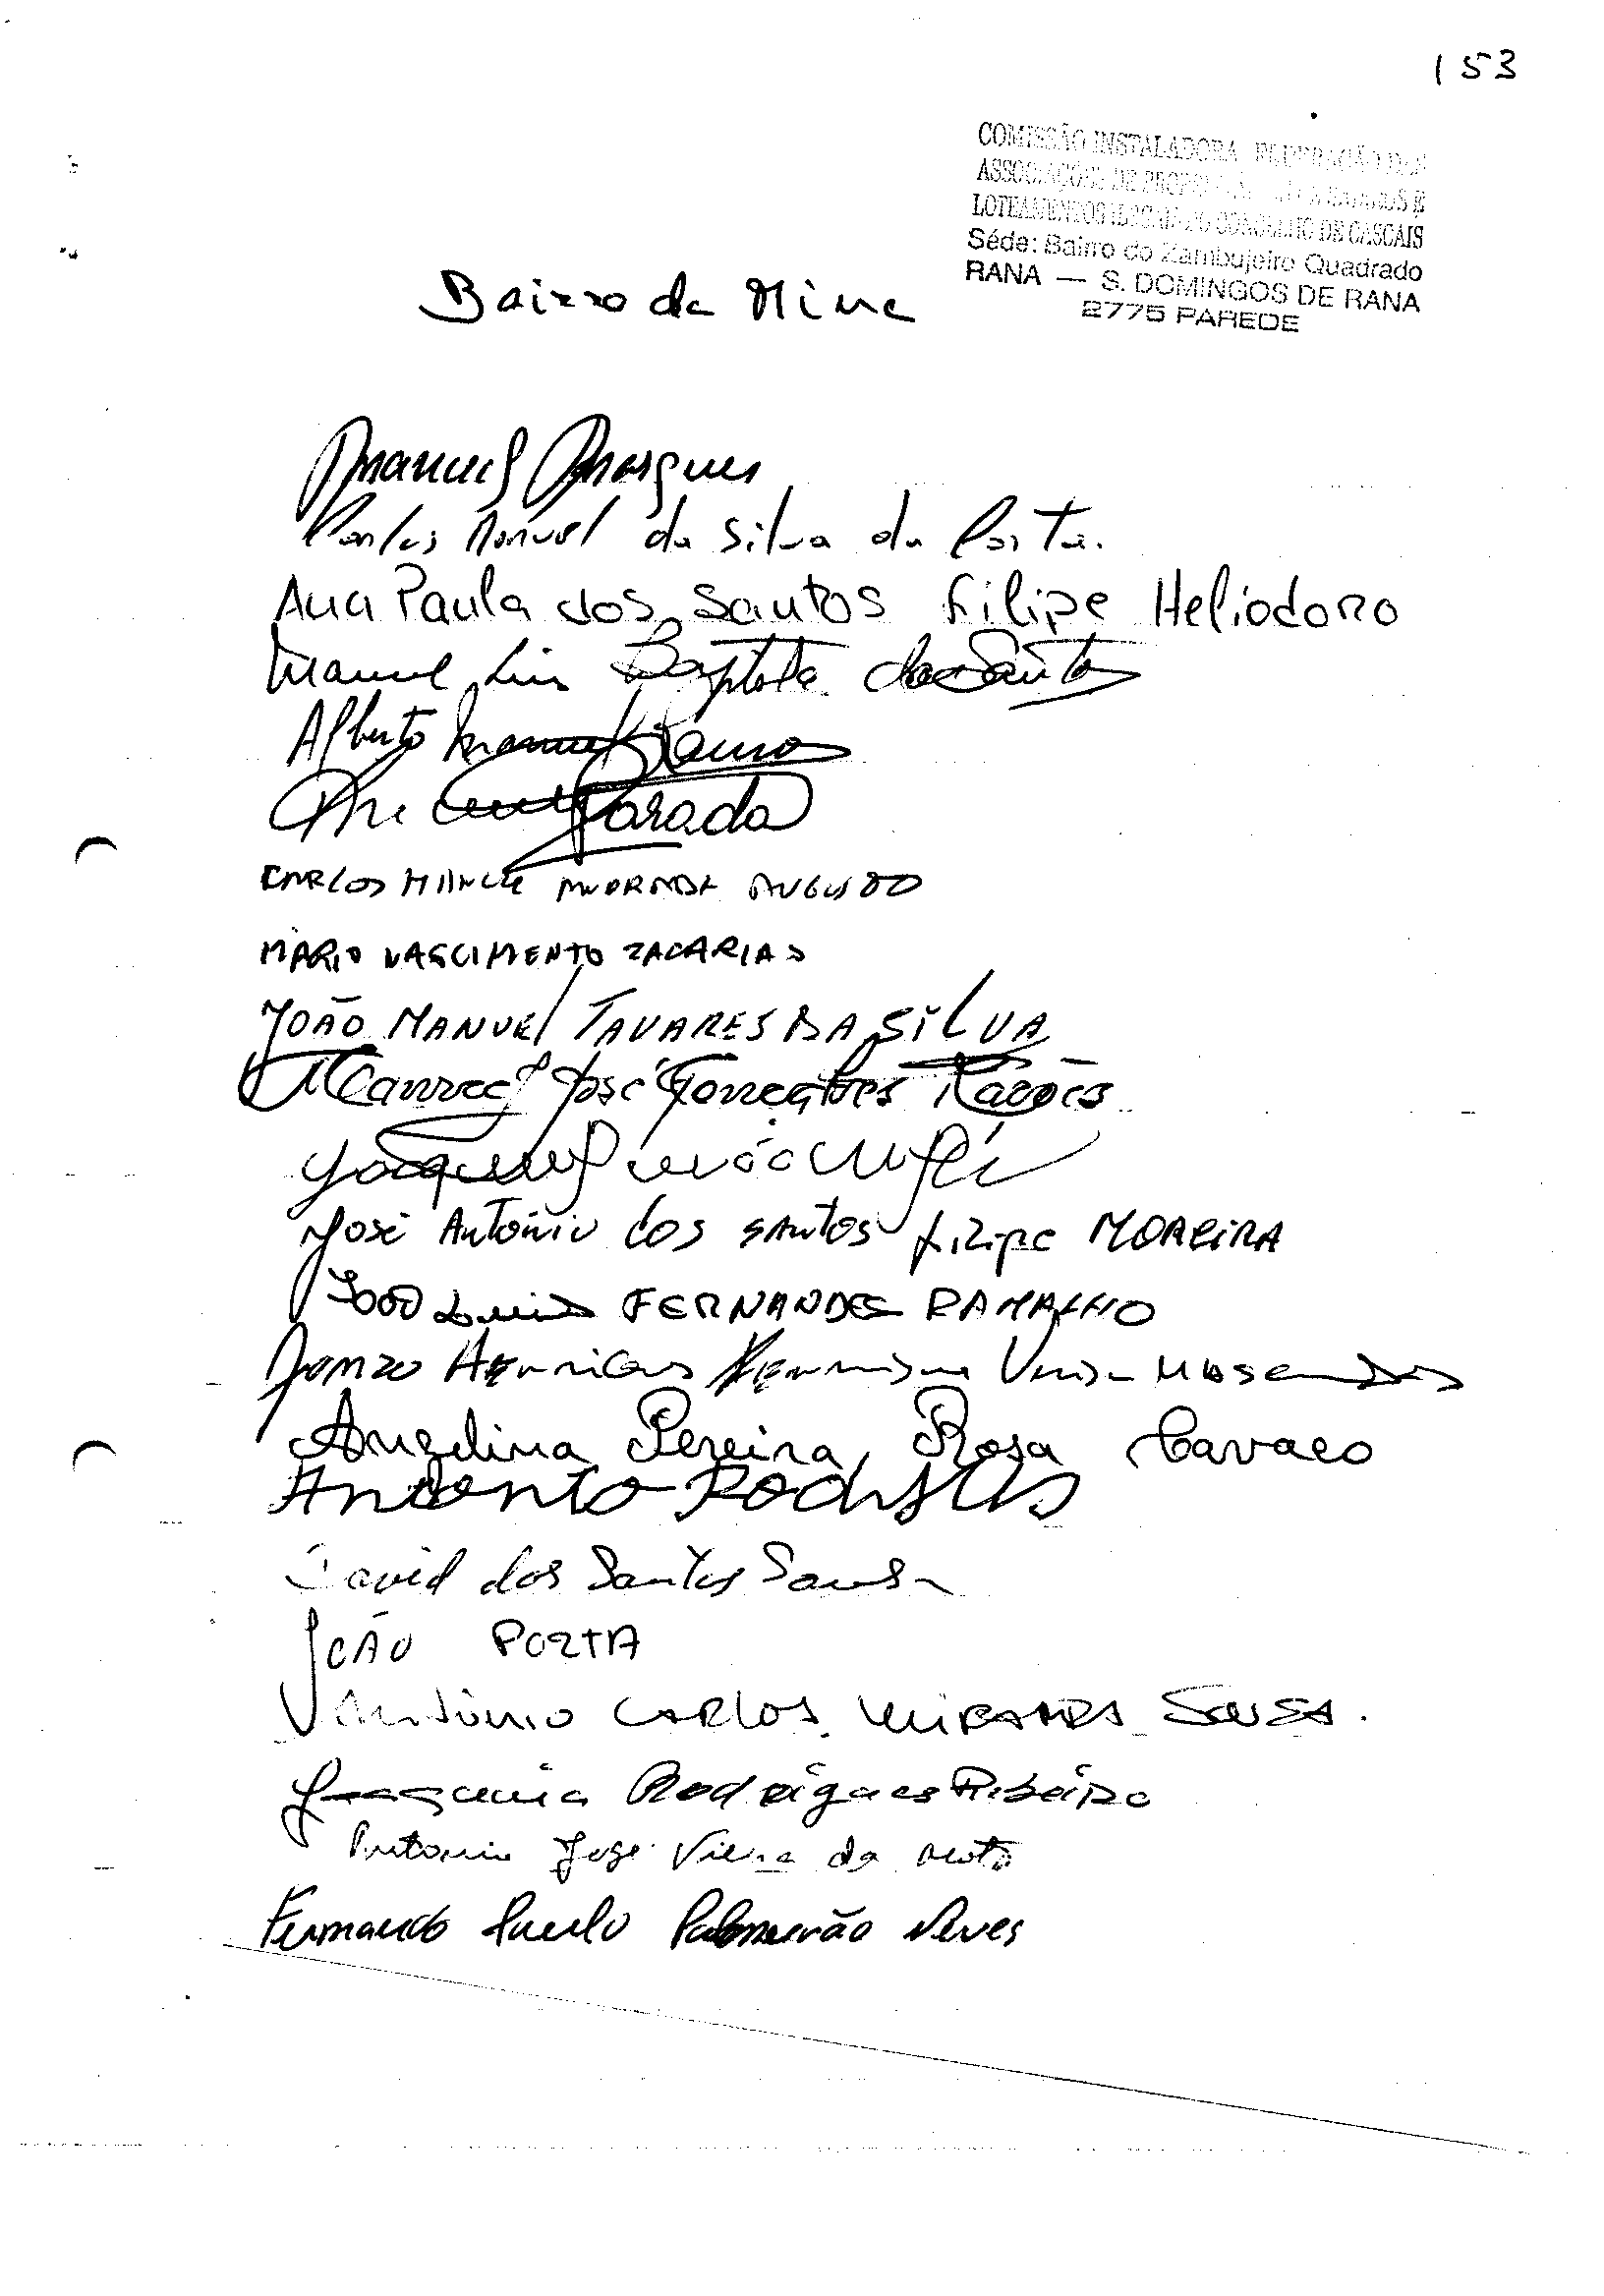 153
COMISSÃO INSTALADORA FEDERAÇÃO DAS
ASSOCIAÇÕES DE
LOTEAMENTOS ILEGAIS DO CONCELHO DE CASCAIS
Séde: Bairro do Zambujeiro Quadrado
RANA — S. DOMINGOS DE RANA
2775 PAREDE
Bairro da Mina
Manuel Marques
Carlos Manuel da Silva da Porta.
Ana Paula dos Santos Filipe Heliodoro
Manuel Luis Baptista dos Santos
Alberto Manuel Ramos
Parada
CARLOS MANUEL ANDRADE AUGUSTO
MÁRIO NASCIMENTO ZACARIAS
JOÃO MANUEL TAVARES DA SILVA
Manuel José Gonçalves
Joaquim
José António dos SANTOS Filipe MOREIRA
João Luis FERNANDES RAMALHO
Henriques
Angelina Pereira Rosa Cavaco
Antonio Rodrigues
David dos Santos Sousa
JOÃO PORTA
António CARLOS MIRANDA SOUSA.
Rodrigues Ribeiro
Antonio José Vieira da Mota
Fernando Paulo Palmeirão Neves